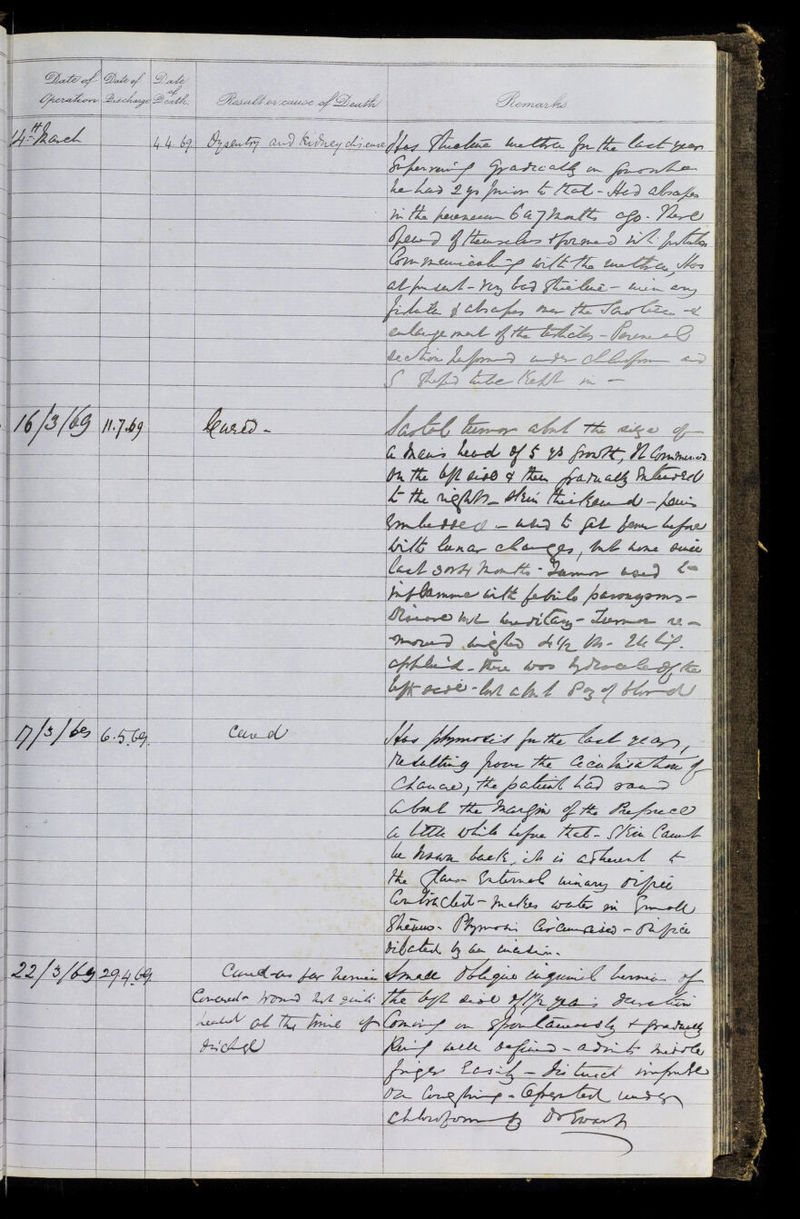 Date of Operation
Date of Discharge
Date of Death
Result or cause of Death
Remarks
14th March
4 4 69
Dysentry and Kidney disease
Has Stricture urethra for the last year
Supervening gradually on
he had 2 ys prior to that - Had abscess
in the perineum 6 a 7 Months ago. These
opened of themselves & formed
Communicating with the urethra, Has
at present - very bad Stricture -
fistula & abscess near the Scrotum &
enlargement of the testicles - Perineal
section performed under Chloroform and
S shaped tube kept in -
16/3/69
11.7.69
Cured -
Scrotal tumor about the size of
a Man's head of 5 ys growth, It Commenced
on the left side & then gradually extended
to the right - Skin thickened - penis
Embedded - used to get fever before
with lunar changes, but none since
last 3 or 4 Months - Tumor used to
inflamme with febrile paroxysms -
Disease not hereditary - Tumor re-
moved weighed 4 1/2 lbs -
applied - there was hydrocele of the
left side - lost about 8 oz of blood
17/3/69
6.5.69.
Cured
Has phymosis for the last year,
resulting from the cicatrisation of
Chancre, the patient had round
about the Margin of the Prepuce
a little while before that - Skin Cannot
be drawn back, it is adherent to
the glans External urinary orifice
Contracted - makes water in Small
Streams - Phymosis Circumcised - Orifice
dilated by an incision.
22/3/69
29.4.69
Cured as far hernia
Concerned - wound not quite
healed at the time of
discharge
Small Oblique inguinal hernia of
the left side of 1 1/2 years duration
Coming on Spontaneously & gradually
Ring well defined - admits middle
finger Easily - distinct impulse
on Coughing - Operated under
Chloroform by Dr Ewart